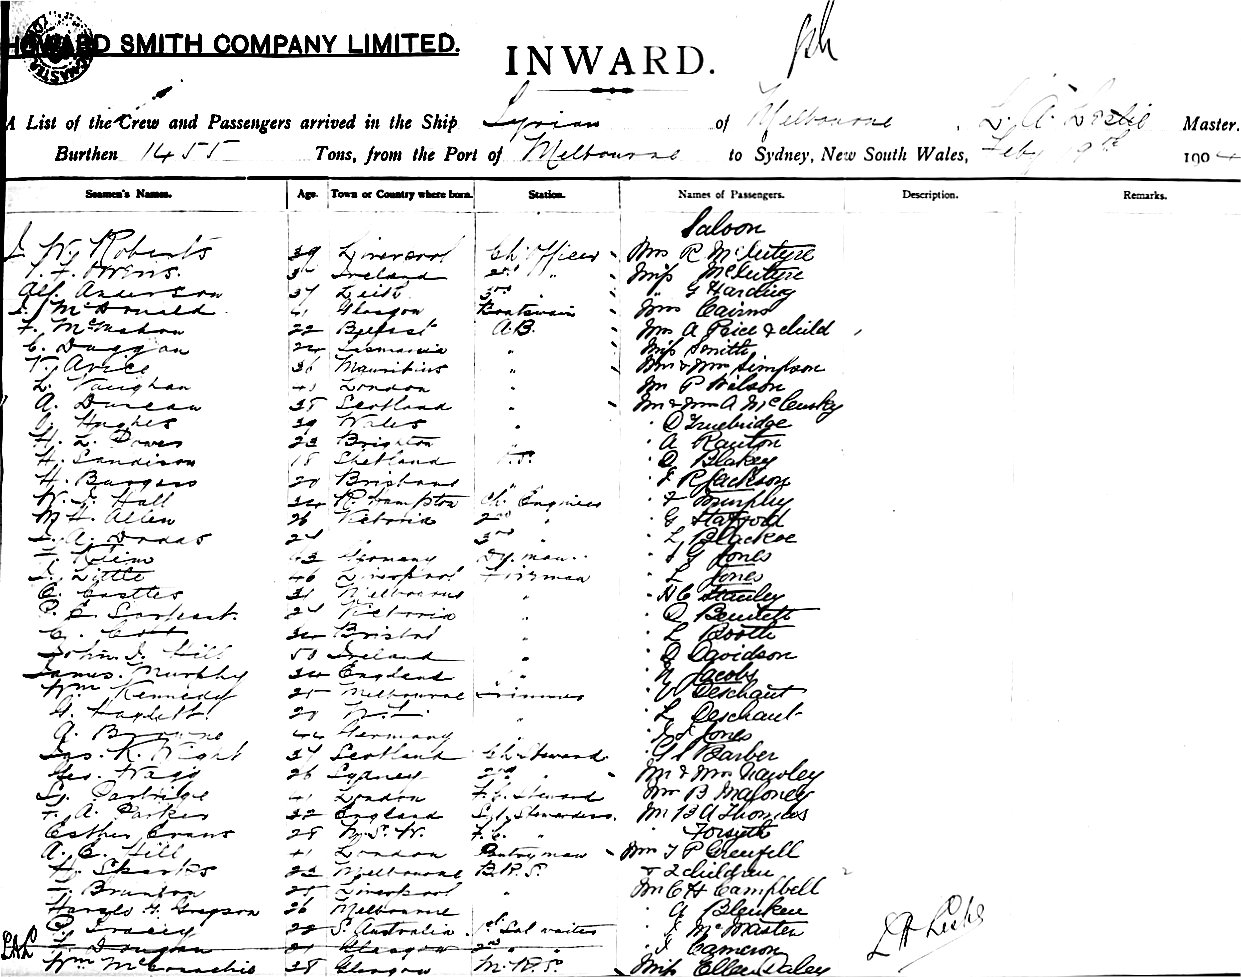 HOWARD SMITH COMPANY LIMITED.
INWARD.
A List of the Crew and Passengers arrived in the Ship Syrian of Melbourne, L. A. Leslie Master.
Burthen 1455 Tons, from the Port of Melbourne to Sydney, New South Wales, Feby 1904
Seamen's Names. Age. Town or Country where born. Station. Names of Passengers. Description. Remarks.
Saloon
J. W. Roberts 39 Liverpool Ch. Officer Mrs R McIntyre
Owens. Ireland 2nd " Miss McIntyre
Alf. Anderson 37 Leith 3rd " G Harding
J. McDonald 41 Glasgow Boatswain Mrs Cairns
F. McMahon 22 Belfast A.B. Mrs A Price & child
C. Duggan 24 Tasmania " Miss Smith
36 Mauritius " Mr & Mrs Simpson
L. Vaughan 41 London " Mr P Wilson
A. Duncan 35 Scotland " Mr & Mrs A McClusky
Hughes 39 Wales " D Truebridge
H. L. Power 23 Brighton " A
H. Sandison 18 Shetland D Blakey
H. Burgess 20 Brisbane J R Jackson
W. J. Hall 34 R. Hampton Ch. Engineer Murphy
M. H. Allen 26 Victoria 2nd " G Stafford
A. Dodds 24 3rd "
Klein 43 Germany Dy. man J G Jones
Little 46 Liverpool Fireman L Jones
C. Castles 31 Melbourne " H C Stanley
P. E. Sargeant. 24 Victoria " D Bennett
C. Cott 34 Bristol " L Booth
John J. Hill 50 Ireland " D Davidson
James Murphy 34 England " N Jacobs
Wm Kennedy 25 Melbourne Trimmer W Deschaut
Haslett. 20 " L Deschaut
A. Browne 44 Germany " Jones
Jas. K. Wight 37 Scotland Ch. Steward G S Barber
Geo. Wagg 26 Sydney 2nd " Mr & Mrs Nawley
Sy. Partridge 41 London F.C. Steward Mr B Maloney
F. A. Parker 32 England Stewardess. Mr B A Thomas
Esther Evans 28 N.S.W. F.C. " Forsyth
A. C. Hill 41 London Pantryman Mrs T P Grenfell
H. Sharks 23 Melbourne B.R.S. & 2 children
Brunton 25 Liverpool " Mr C H Campbell
Harold H. Grayson 26 Melbourne A
Tracey 22 S. Australia 1st Sal waiter J McMaster
LAL Dougan Glasgow 2nd " J Cameron
Wm 38 Glasgow M.R.S. Miss Ellen Daley
L A Leslie